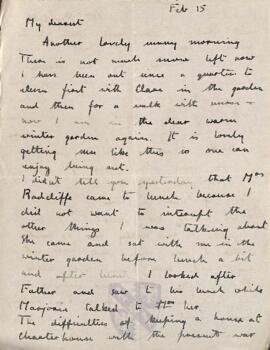 Feb 15
My dearest
Another lovely sunny morning
There is not much snow left now
I have been out since a quarter to
eleven first with Clare in the garden
and then for a walk with
now I am in the dear warm
winter garden again. It is lovely
getting sun like this so one can
enjoy being out.
I didn't tell you yesterday that Mrs
Radcliffe came to lunch because I
did not want to interrupt the
other things I was talking about
She came and sat with me in the
winter garden before lunch a bit
and after lunch. I looked after
Father and saw to his lunch while
Marjorie talked to Mrs her.
The difficulties of keeping a house at
Charterhouse with the present war